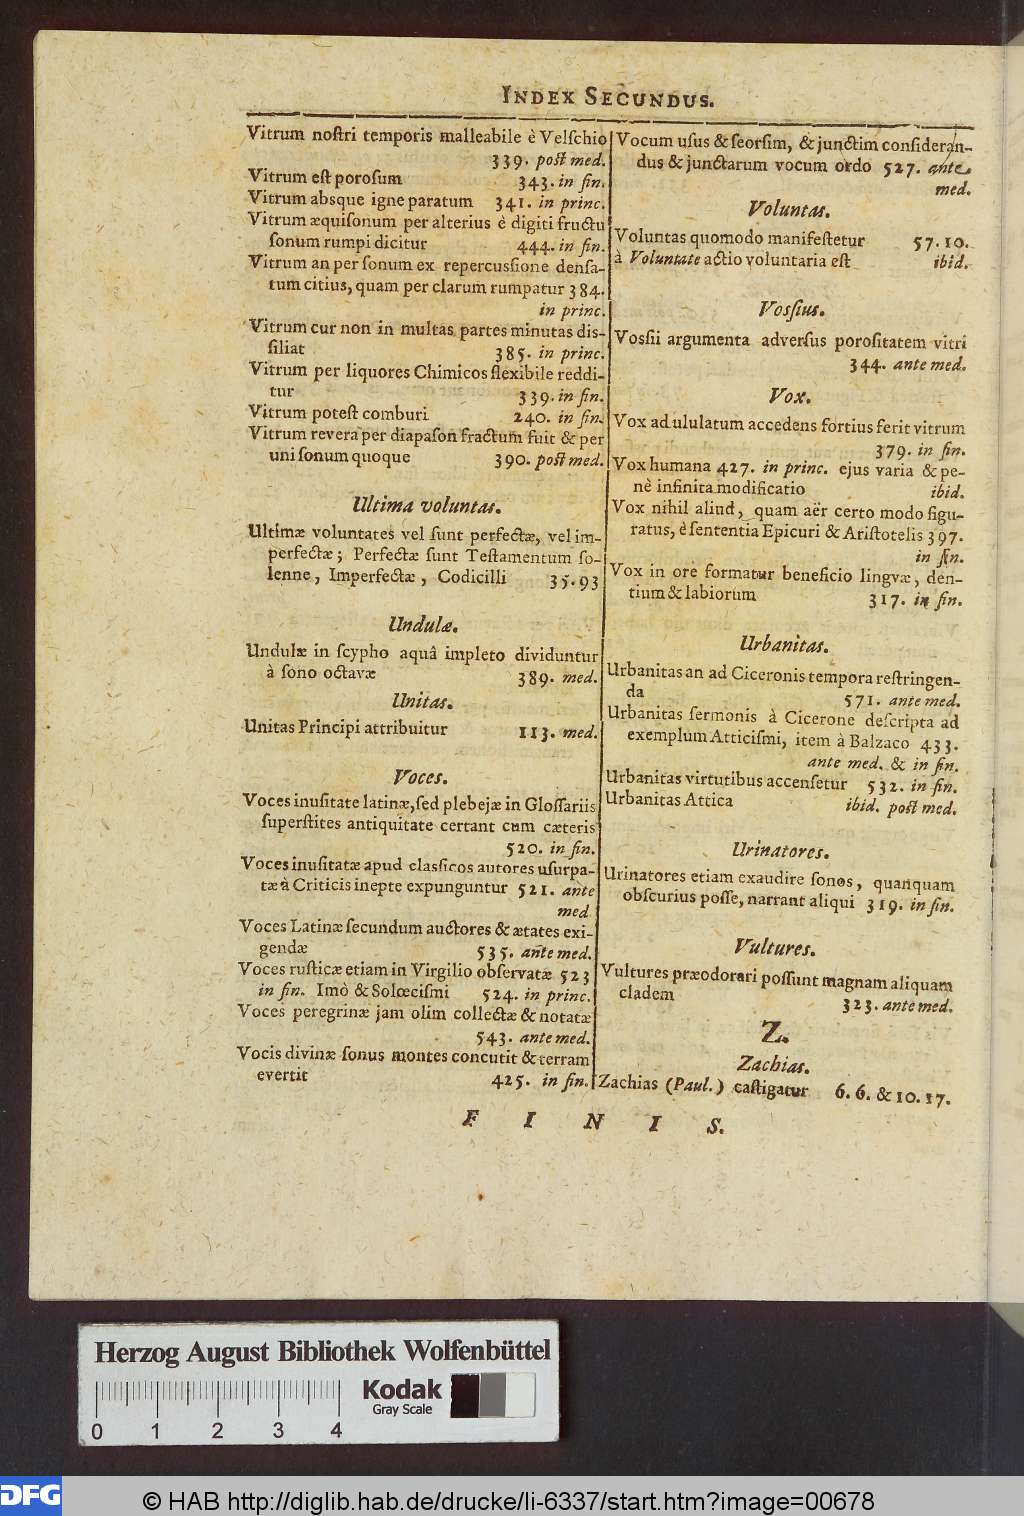 INDEX SECUNDUS.
Vitrum noſtri temporis malleabile è Velſchio
339. poſt med.
Vitrum eſt poroſum 343. in fin.
Vitrum absque igne paratum 341. in princ.
Vitrum æquiſonum per alterius è digiti fructu
ſonum rumpi dicitur 444. in fin.
Vitrum an per ſonum ex repercuſſione denſa-
tum citius, quam per clarum rumpatur 384.
in princ.
Vitrum cur non in multas partes minutas dis-
ſiliat 385. in princ.
Vitrum per liquores Chimicos flexibile reddi-
tur 339. in fin.
Vitrum poteſt comburi 240. in fin.
Vitrum revera per diapaſon fractum fuit & per
uni ſonum quoque 390. poſt med.
Ultima voluntas.
Ultimæ voluntates vel ſunt perfectæ, vel im-
perfectæ; Perfectæ ſunt Teſtamentum ſo-
lenne, Imperfectæ, Codicilli 35.93
Undulæ.
Undulæ in ſcypho aquâ impleto dividuntur
à ſono octavæ 389. med.
Unitas.
Unitas Principi attribuitur 113. med.
Voces.
Voces inuſitate latinæ, ſed plebejæ in Gloſſariis
ſuperſtites antiquitate certant cum cæteris
520. in fin.
Voces inuſitatæ apud claſſicos autores uſurpa-
tæ à Criticis inepte expunguntur 521. ante
med
Voces Latinæ ſecundum auctores & ætates exi-
gendæ 535. ante med.
Voces ruſticæ etiam in Virgilio obſervatæ 523
in fin. Imò & Solœciſmi 524. in princ.
Voces peregrinæ jam olim collectæ & notatæ
543. ante med.
Vocis divinæ ſonus montes concutit & terram
evertit 425. in fin.
Vocum uſus & ſeorſim, & junctim conſideran-
dus & junctarum vocum ordo 527. ante
med.
Voluntas.
Voluntas quomodo manifeſtetur 57. 10.
à Voluntate actio voluntaria eſt ibid.
Voſſius.
Voſſii argumenta adverſus poroſitatem vitri
344. ante med.
Vox.
Vox ad ululatum accedens fortius ferit vitrum
379. in fin.
Vox humana 427. in princ. ejus varia & pe-
nè infinita modificatio ibid.
Vox nihil aliud, quam aër certo modo figu-
ratus, è ſententia Epicuri & Ariſtotelis 397.
in fin.
Vox in ore formatur beneficio lingvæ, den-
tium & labiorum 317. in fin.
Urbanitas.
Urbanitas an ad Ciceronis tempora reſtringen-
da 571. ante med.
Urbanitas ſermonis à Cicerone deſcripta ad
exemplum Atticiſmi, item à Balzaco 433.
ante med. & in fin.
Urbanitas virtutibus accenſetur 532. in fin.
Urbanitas Attica ibid. poſt med.
Urinatores.
Urinatores etiam exaudire ſonos, quanquam
obſcurius poſſe, narrant aliqui 319. in fin.
Vultures.
Vultures præodorari poſſunt magnam aliquam
cladem 323. ante med.
Z.
Zachias.
Zachias (Paul.) caſtigatur 6. 6. & 10. 17.
F I N I S.
Herzog August Bibliothek Wolfenbüttel
Kodak
Gray Scale
0 1 2 3 4
DFG
© HAB http://diglib.hab.de/drucke/li-6337/start.htm?image=00678